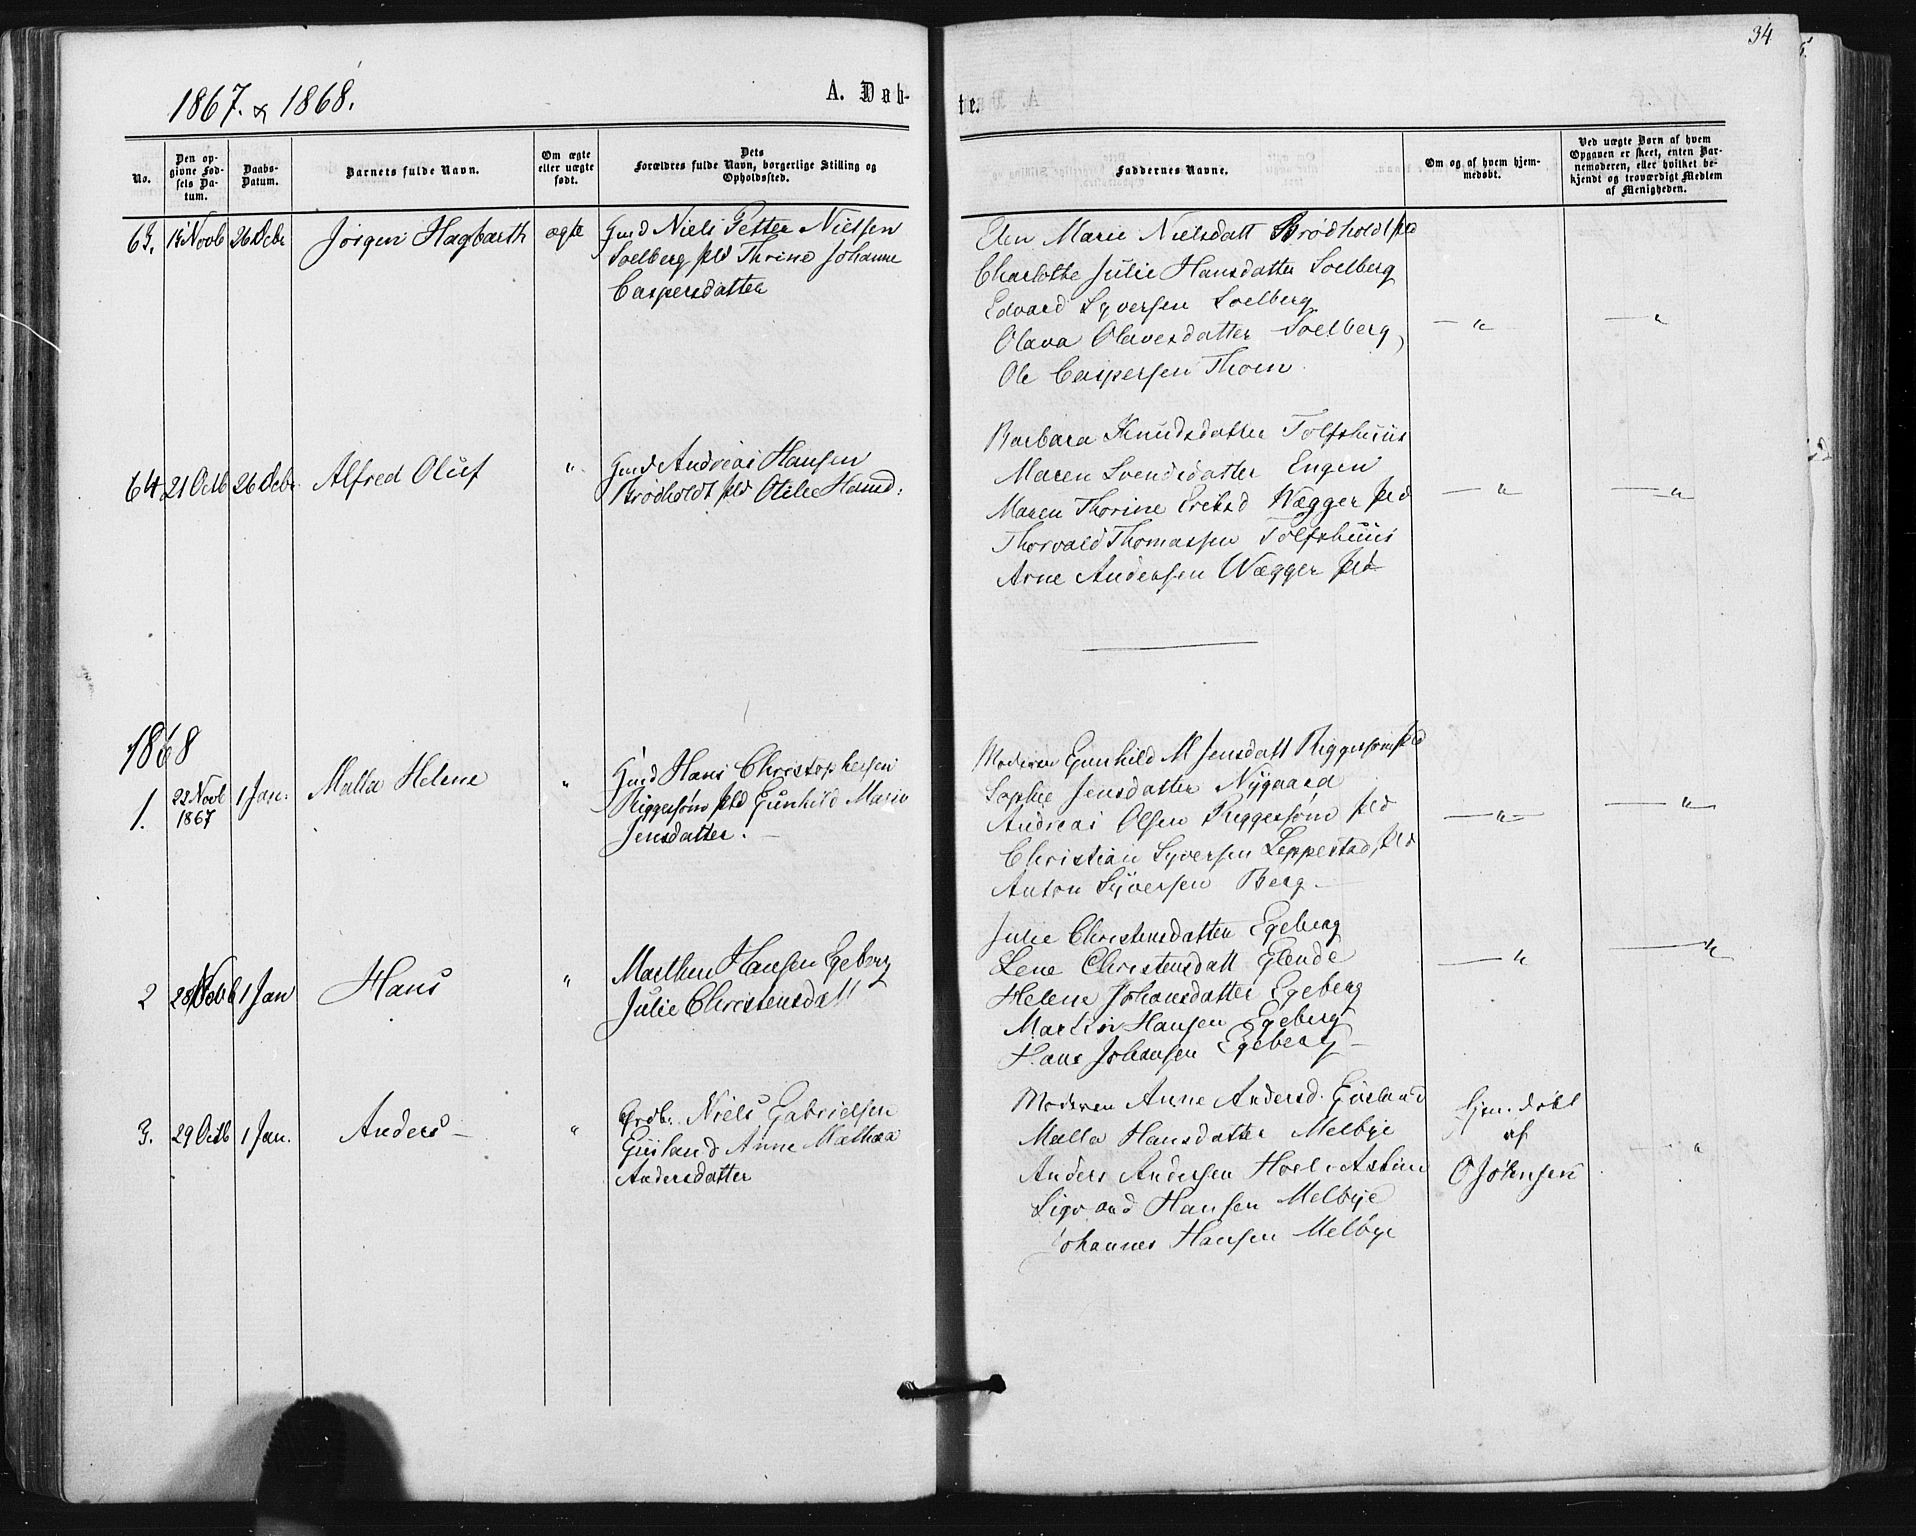 34
1867. & 1868.
A. Døb-
te.
No.
Den op-
givne Fød-
sels Da-
tum.
Daabs-
Datum.
Barnets fulde Navn.
Om ægte
eller uægte
født.
Dets
Forældres fulde Navn, borgerlige Stilling og
Opholdssted.
Faddernes Navne.
Om og af hvem hjem-
medøbt.
Ved uægte Børn af hvem
Opgaven er skeet, enten Bar-
nemoderen, eller hvilket be-
kjendt og troværdigt Medlem
af Menigheden.
63. Novb 26 Dcbr Jørgen Hagbarth ægte
Gmd Niels Petter Nielsen
Soelberg pld Thrine Johanne
Caspersdatter
Elen Marie Nielsdatt Brødholdt pld
Charlotte Julie Hansdatter Soelberg
Edvard Syversen Soelberg
Olava Olavesdatter Soelberg
Ole Caspersen Thoen
— " —
— " —
64. 21 Octb 26 Dcbr. Alfred Oluf "
Gmd Andreas Hansen
Brødholdt pld Otilie Hansd:
Barbara Knudsdatter Tolfshuus
Maren Svendsdatter Engen
Maren Thorine Eriksd Wægger pld
Thorvald Thomassen Tolfshuus
Arne Andersen Wægger pld
— " —
— " —
1868
1. 22 Novb 1867 1 Jan. Malla Helene "
Gmd Hans Christophersen
Riggesøm pld Gunhild Marie
Jensdatter. —
Moderen Gunhild M Jensdatt Riggesøm pld
Sophie Jensdatter Nygaard
Andreas Olsen Riggesøm pld
Christian Syversen Leppestad, pld
Anton Syversen Berg —
— " —
— " —
2 28 Novb 1 Jan Hans "
Mathen Hansen Egeberg
Julie Christensdatt
Julie Christensdatter Egeberg
Lene Christensdatt Glende
Helene Johansdatter Egeberg
Martin Hansen Egeberg
Hans Johansen Egeberg —
— "
— "
3. 29 Octb 1 Jan. Anders — "
Grdb. Niels Gabrielsen
Guslund Anne Mathea
Andersdatter
Moderen Anne Andersd. Guslund
Malla Hansdatter Melbye
Anders Andersen Hoel
Sigvard Hansen Melbye
Johannes Hansen Melbye
Hjem. døbt
af
O Johnsen
— "